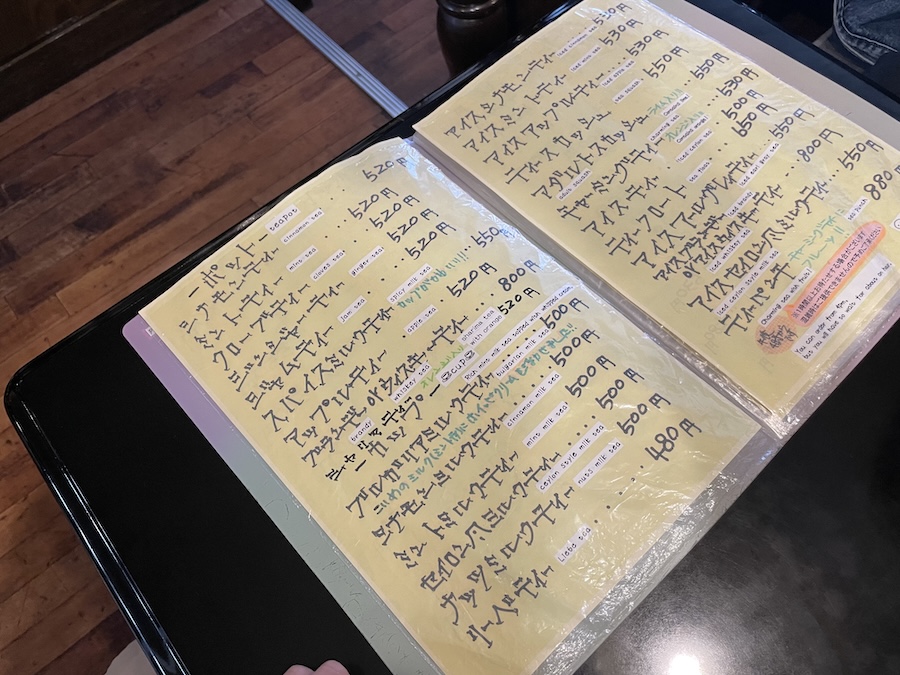 ーポットー teapot
シナモンティー cinnamon tea ... 520円
ミントティー mint tea ... 520円
クローブティー cloves tea ... 520円
ジンジャーティー ginger tea ... 520円
ジャムティー jam tea ... 520円
スパイスミルクティー spicy milk tea ... 550円
アップルティー apple tea ... 520円
ブランデー or ウイスキーティー ... 800円
brandy whiskey tea
シャリマティー オレンジ入り charima tea with orange ... 520円
ーカップー cup
ブルガリアミルクティー ... 500円
こいめのミルクミントティーにホイップクリーム
シナモンミルクティー cinnamon milk tea ... 500円
ミントミルクティー mint milk tea ... 500円
セイロン風ミルクティー ceylon style milk tea ... 500円
ナッツミルクティー nuts milk tea ... 500円
リーベティー Liebe tea ... 480円
アイスシナモンティー iced cinnamon tea 530円
アイスミントティー iced mint tea 530円
アイスアップルティー iced apple tea ... 530円
ティースカッシュ tea squash ... 550円
アダルトスカッシュ ライム入り adult squash ... 550円
チャーミングティー オレンジ入り charming tea ... 530円
アイスティー iced ceylon tea ... 500円
ティーフロート tea float ... 650円
アイスアールグレイティー iced earl gray tea ... 550円
アイスブランデー or アイスウイスキーティー ... 800円
iced brandy
iced whiskey tea
アイスセイロン風ミルクティー ... 550円
iced ceylon style milk tea
ティーパンチ tea punch 880円
チャーミングティー
フルーツ!!
Charming tea with fruit!
You can order from 4pm,
but you will have to wait for about an hour